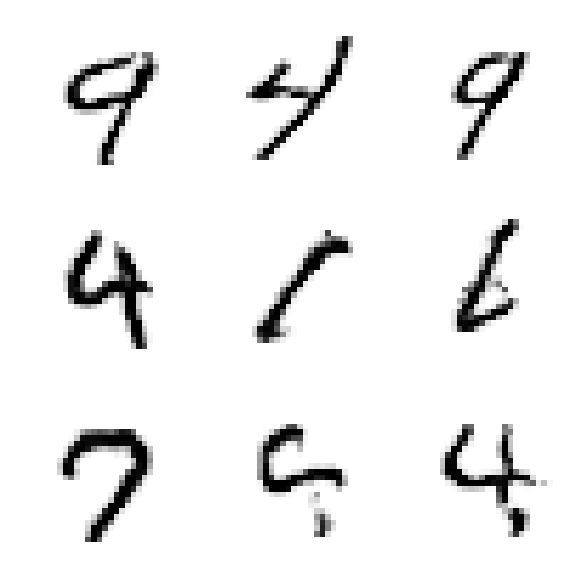 9 4 9
4 1 6
7 5 4